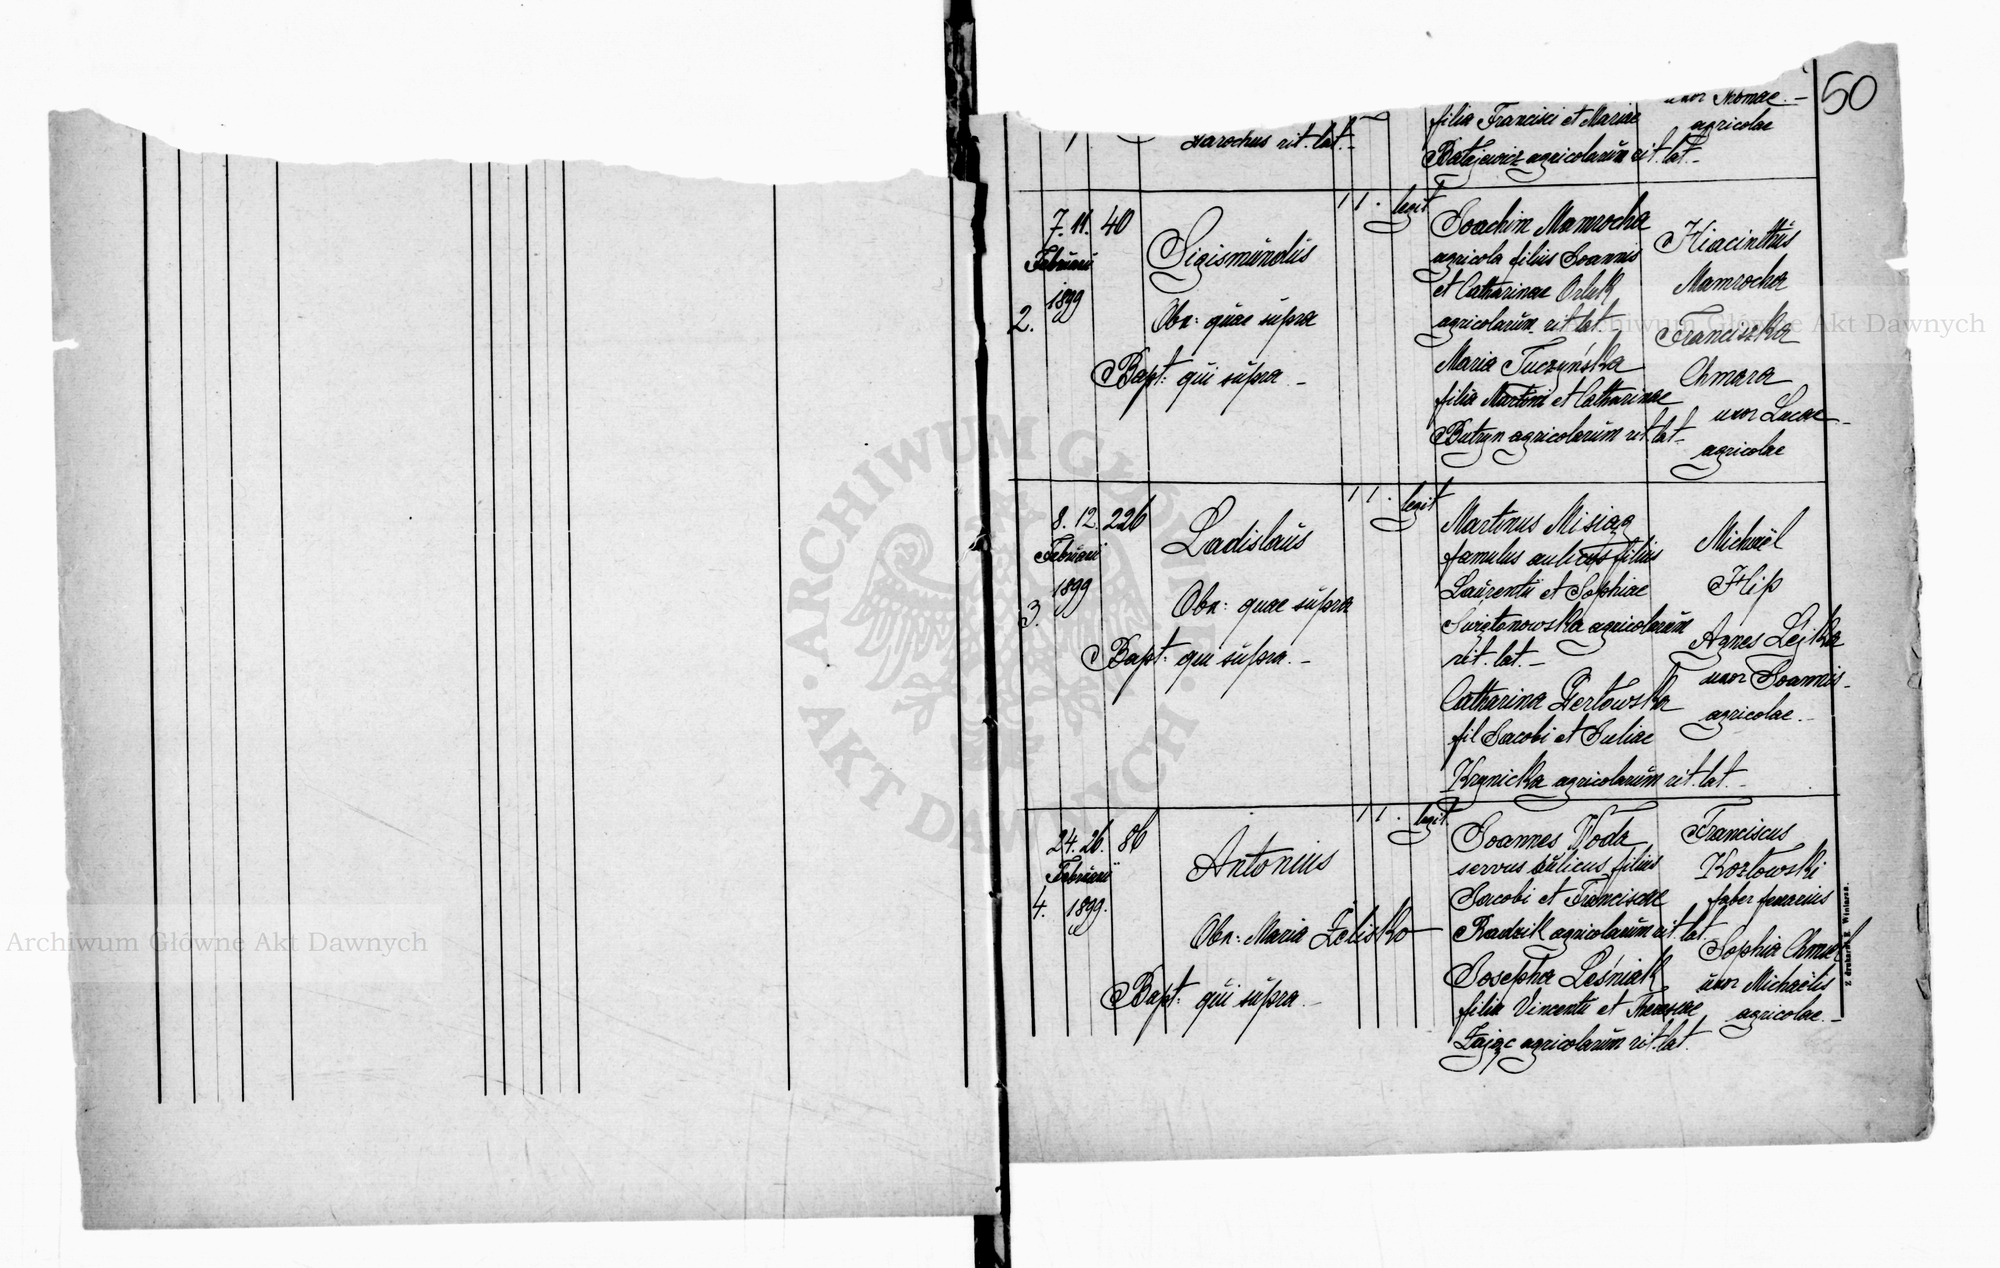 50
uxor Thomae. –
filia Francisci et Mariae
agricolae
parochus rit. lat. –
Batajewicz agricolarum rit. lat. –
1 1 . legit
7. 11. 40
Februarii
1899
2.
Sigismundus
Obs: quae supra
Bapt: qui supra. –
Joachim Mamrocha
agricola filius Joannis
et Catharinae Orluk
agricolarum rit lat.
Maria Tuczyńska
filia Martini et Catharinae
Butryn agricolarum rit lat –
Hiacinthus
Mamrocha
Franciszka
Chmara
uxor Lucae –
agricolae
1 1 . legit
8. 12. 226
Februarii
1899
3.
Ladislaus
Obs: quae supra
Bapt: qui supra. –
Martinus Misiąg
famulus aulicus filius
Laurentii et Sophiae
agricolarum
rit. lat. –
Catharina
fil Jacobi et Juliae
Krynicka agricolarum rit. lat –
Michaël
Hip
Agnes
uxor Joannis –
agricolae. –
1 1 . legit.
24. 26. 86
Februarii
4. 1899.
Antonius
Obs: Maria Żelisko
Bapt: qui supra. –
Joannes Woda
servus aulicus filius
Jacobi et Franciscae
Radzik agricolarum rit lat.
Josepha Leśniak
filia Vincentii et Theresae
Zając agricolarum rit. lat.
Franciscus
Kozłowski
faber ferrarius
Sophia Chmiel
uxor Michaëlis
agricolae. –
Z drukarni E. Winiarza.
ARCHIWUM GŁÓWNE AKT DAWNYCH
Archiwum Główne Akt Dawnych
Archiwum Główne Akt Dawnych